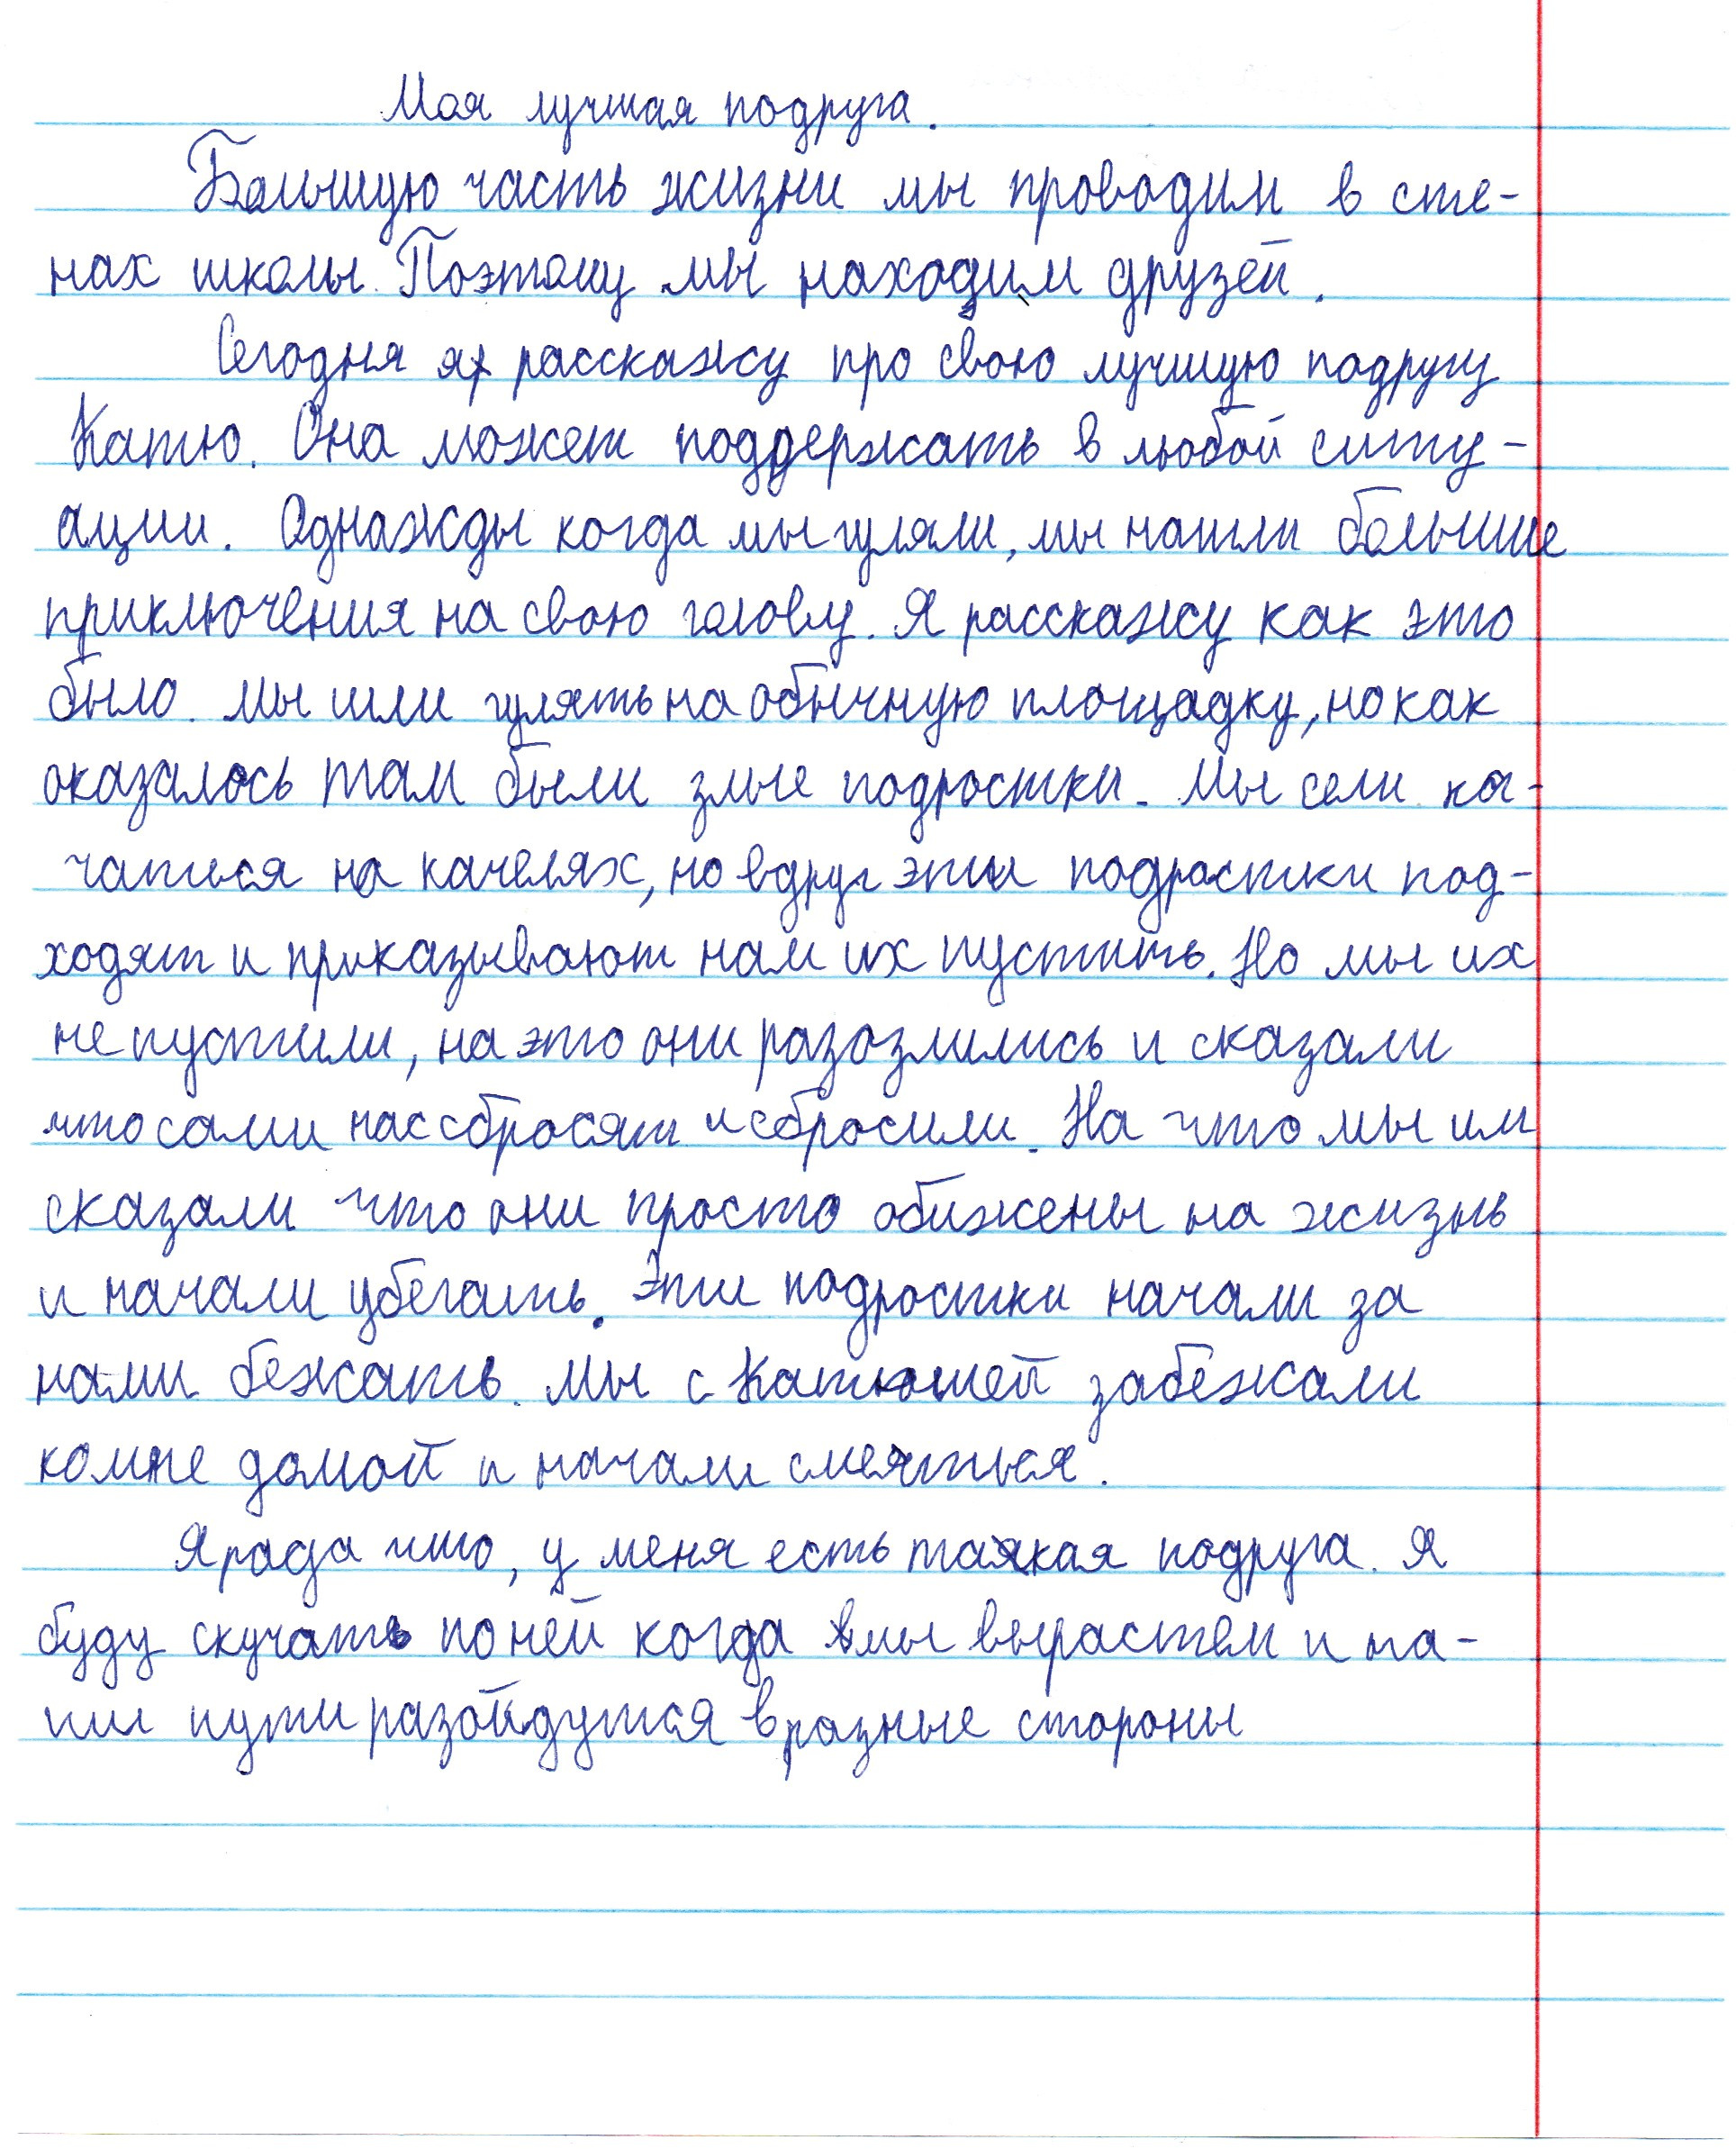 Моя лучшая подруга.
Большую часть жизни мы проводим в сте-
нах школы. Поэтому мы находим друзей.
Сегодня я расскажу про свою лучшую подругу
Катю. Она может поддержать в любой ситу-
ации. Однажды когда мы гуляли, мы нашли большие
приключения на свою голову. Я расскажу как это
было. Мы шли гулять на обычную площадку, но как
оказалось там были злые подростки. Мы сели ка-
чаться на качелях, но вдруг эти подростки под-
ходят и приказывают нам их пустить. Но мы их
не пустили, на это они разозлились и сказали
что сами нас сбросят и сбросили. На что мы им
сказали что они просто обижены на жизнь
и начали убегать. Эти подростки начали за
нами бежать. Мы с Катюшей забежали
ко мне домой и начали смеяться.
Я рада что, у меня есть такая подруга. Я
буду скучать по ней когда мы вырастем и на-
ши пути разойдутся в разные стороны